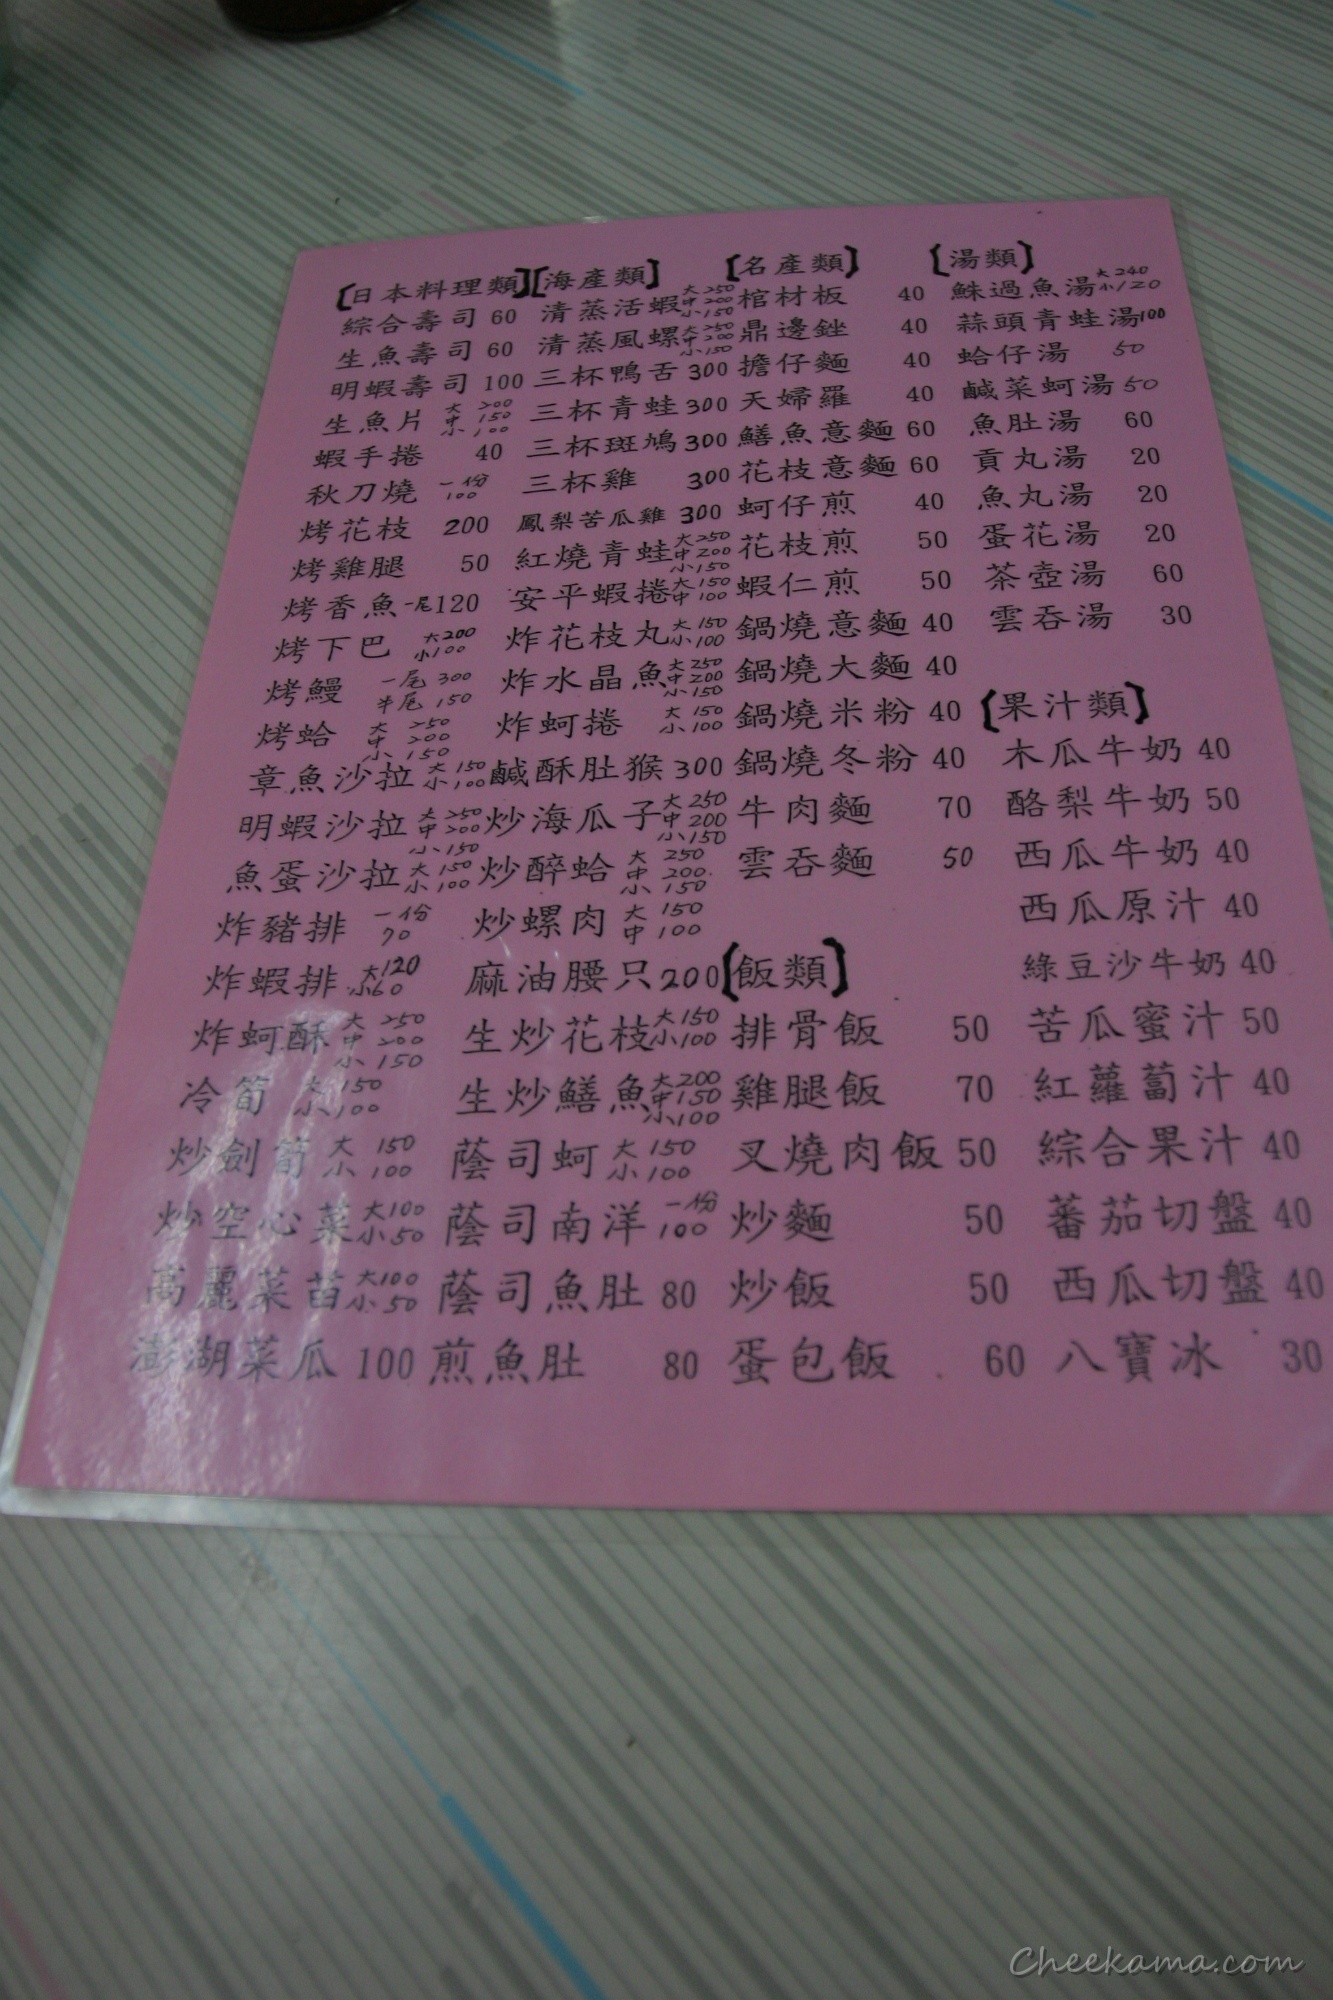 【日本料理類】
綜合壽司 60
生魚壽司 60
明蝦壽司 100
生魚片 大200 中150 小100
蝦手捲 40
秋刀燒 一份100
烤花枝 200
烤雞腿 50
烤香魚 一尾120
烤下巴 大200 小100
烤鰻 一尾300 半尾150
烤蛤 大250 中200 小150
章魚沙拉 大150 小100
明蝦沙拉 大250 中200 小150
魚蛋沙拉 大150 小100
炸豬排 一份70
炸蝦排 大120 小60
炸蚵酥 大250 中200 小150
冷筍 大150 小100
炒劍筍 大150 小100
炒空心菜 大100 小50
高麗菜苗 大100 小50
澎湖菜瓜 100
【海產類】
清蒸活蝦 大250 中200 小150
清蒸風螺 大250 中200 小150
三杯鴨舌 300
三杯青蛙 300
三杯斑鳩 300
三杯雞 300
鳳梨苦瓜雞 300
紅燒青蛙 大250 中200 小150
安平蝦捲 大150 中100
炸花枝丸 大150 小100
炸水晶魚 大250 中200 小150
炸蚵捲 大150 小100
鹹酥肚猴 300
炒海瓜子 大250 中200 小150
炒醉蛤 大250 中200 小150
炒螺肉 大150 中100
麻油腰只 200
生炒花枝 大150 小100
生炒鱔魚 大200 中150 小100
蔭司蚵 大150 小100
蔭司南洋 一份100
蔭司魚肚 80
煎魚肚 80
【名產類】
棺材板 40
鼎邊銼 40
擔仔麵 40
天婦羅 40
鱔魚意麵 60
花枝意麵 60
蚵仔煎 40
花枝煎 50
蝦仁煎 50
鍋燒意麵 40
鍋燒大麵 40
鍋燒米粉 40
鍋燒冬粉 40
牛肉麵 70
雲吞麵 50
【飯類】
排骨飯 50
雞腿飯 70
叉燒肉飯 50
炒麵 50
炒飯 50
蛋包飯 60
【湯類】
鮢過魚湯 大240 小120
蒜頭青蛙湯 100
蛤仔湯 50
鹹菜蚵湯 50
魚肚湯 60
貢丸湯 20
魚丸湯 20
蛋花湯 20
茶壺湯 60
雲吞湯 30
【果汁類】
木瓜牛奶 40
酪梨牛奶 50
西瓜牛奶 40
西瓜原汁 40
綠豆沙牛奶 40
苦瓜蜜汁 50
紅蘿蔔汁 40
綜合果汁 40
蕃茄切盤 40
西瓜切盤 40
八寶冰 30
Cheekama.com